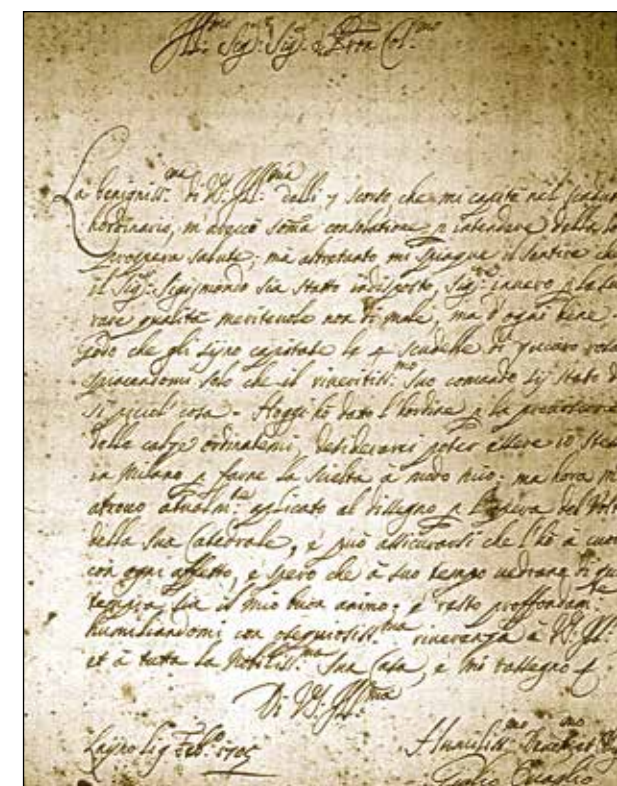 Ill.mo Sig.r Sig.r e Pron Col.mo
La benigniss.ma di VS. Ill.ma delli 7 scorso che mi capitò nel
hordinario, m'arecò soma consolatione p intendere della
prospera salute; ma altretanto mi spiaque il sentire che
il Sig.r Sigismondo sia stato indisposto, Sig.re invero p la
rare qualità meritevole non di male, ma d'ogni bene
Godo che gli sijno capitate le 4 scudelle di zuccaro
spiacendomi solo che il riveritiss.mo suo comando sij stato
si picciol cosa - Hoggi hò dato l'hordine p la
delle calze ordinatemi, desiderarei poter essere io
in Milano p farne la scielta à modo mio; ma hora
atrovo atualm.te aplicato al dissegno p l'opera del
della sua Catedrale, e può assicurarsi che l'hò à
con ogni affetto, e spero che à suo tempo vedrano di
sia il mio buon animo; e resto proffondam.te
humiliandomi con osequiosiss.ma riverenza à VS. Ill.
et à tutta la Nobiliss.ma sua Casa, e mi rassegno
Di VS. Ill.ma
Lajno li 9 Feb.o 1705
Humiliss.mo
Giulio Quaglio